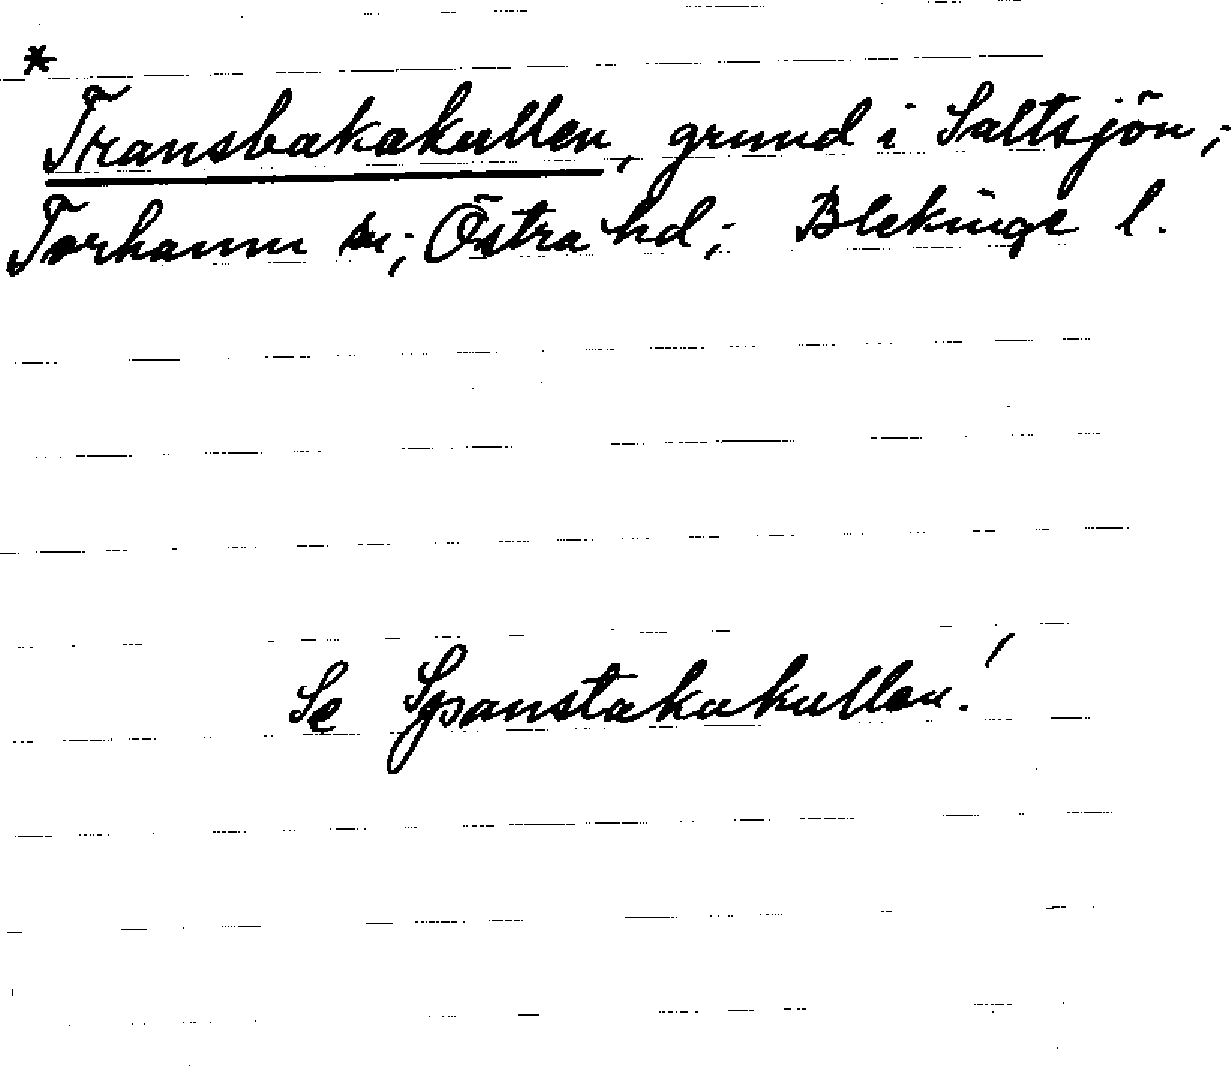 *
Transbakakullen, grund i Saltsjön;
Torhamn sn; Östra hd; Blekinge l.
Se Spanstakakullen!